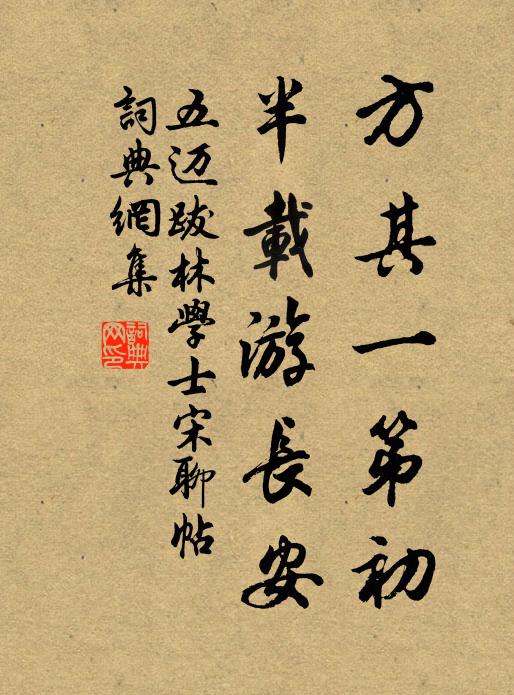 方其一第初
半載游长安
五迈跋林學士宋聊帖
詞典網集
詞典网印